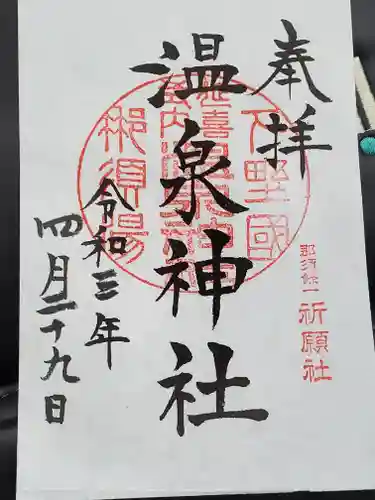 奉拝
那須余一
祈願社
温泉神社
下野國
延喜式内
温泉神社
那須湯
令和三年
四月二十九日